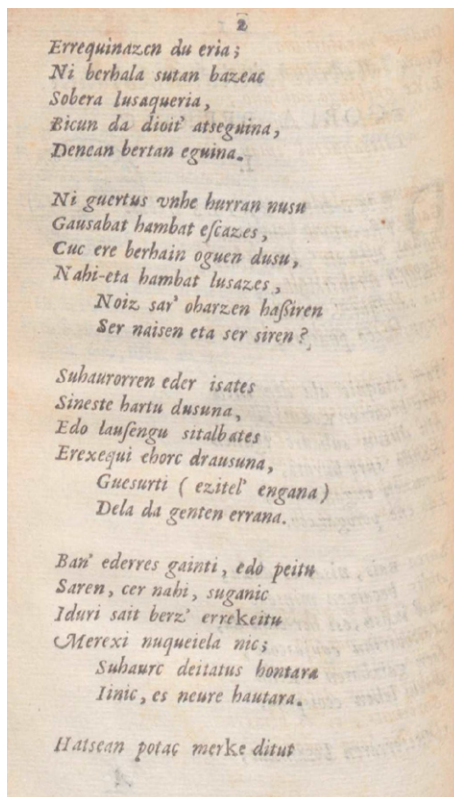 2
Errequinazen du eria;
Ni berhala sutan bazeac
Sobera lusaqueria,
Bicun da dioit' atseguina,
Denean bertan eguina.
Ni guertus vnhe hurran nusu
Gausabat hambat eſcazes,
Cuc ere berhain oguen dusu,
Nahi-eta hambat lusazes,
Noiz sar' oharzen haßiren
Ser naisen eta ser siren?
Suhaurorren eder isates
Sineste hartu dusuna,
Edo lauſengu sitalbates
Erexequi ehorc drausuna,
Guesurti ( ezitel' engana)
Dela da genten errana.
Ban' ederres gainti, edo peitu
Saren, cer nahi, suganic
Iduri sait berz' errekeitu
Merexi nuqueiela nic;
Suhaurc deitatus hontara
Iinic, es neure hautara.
Hatsean potac merke ditut